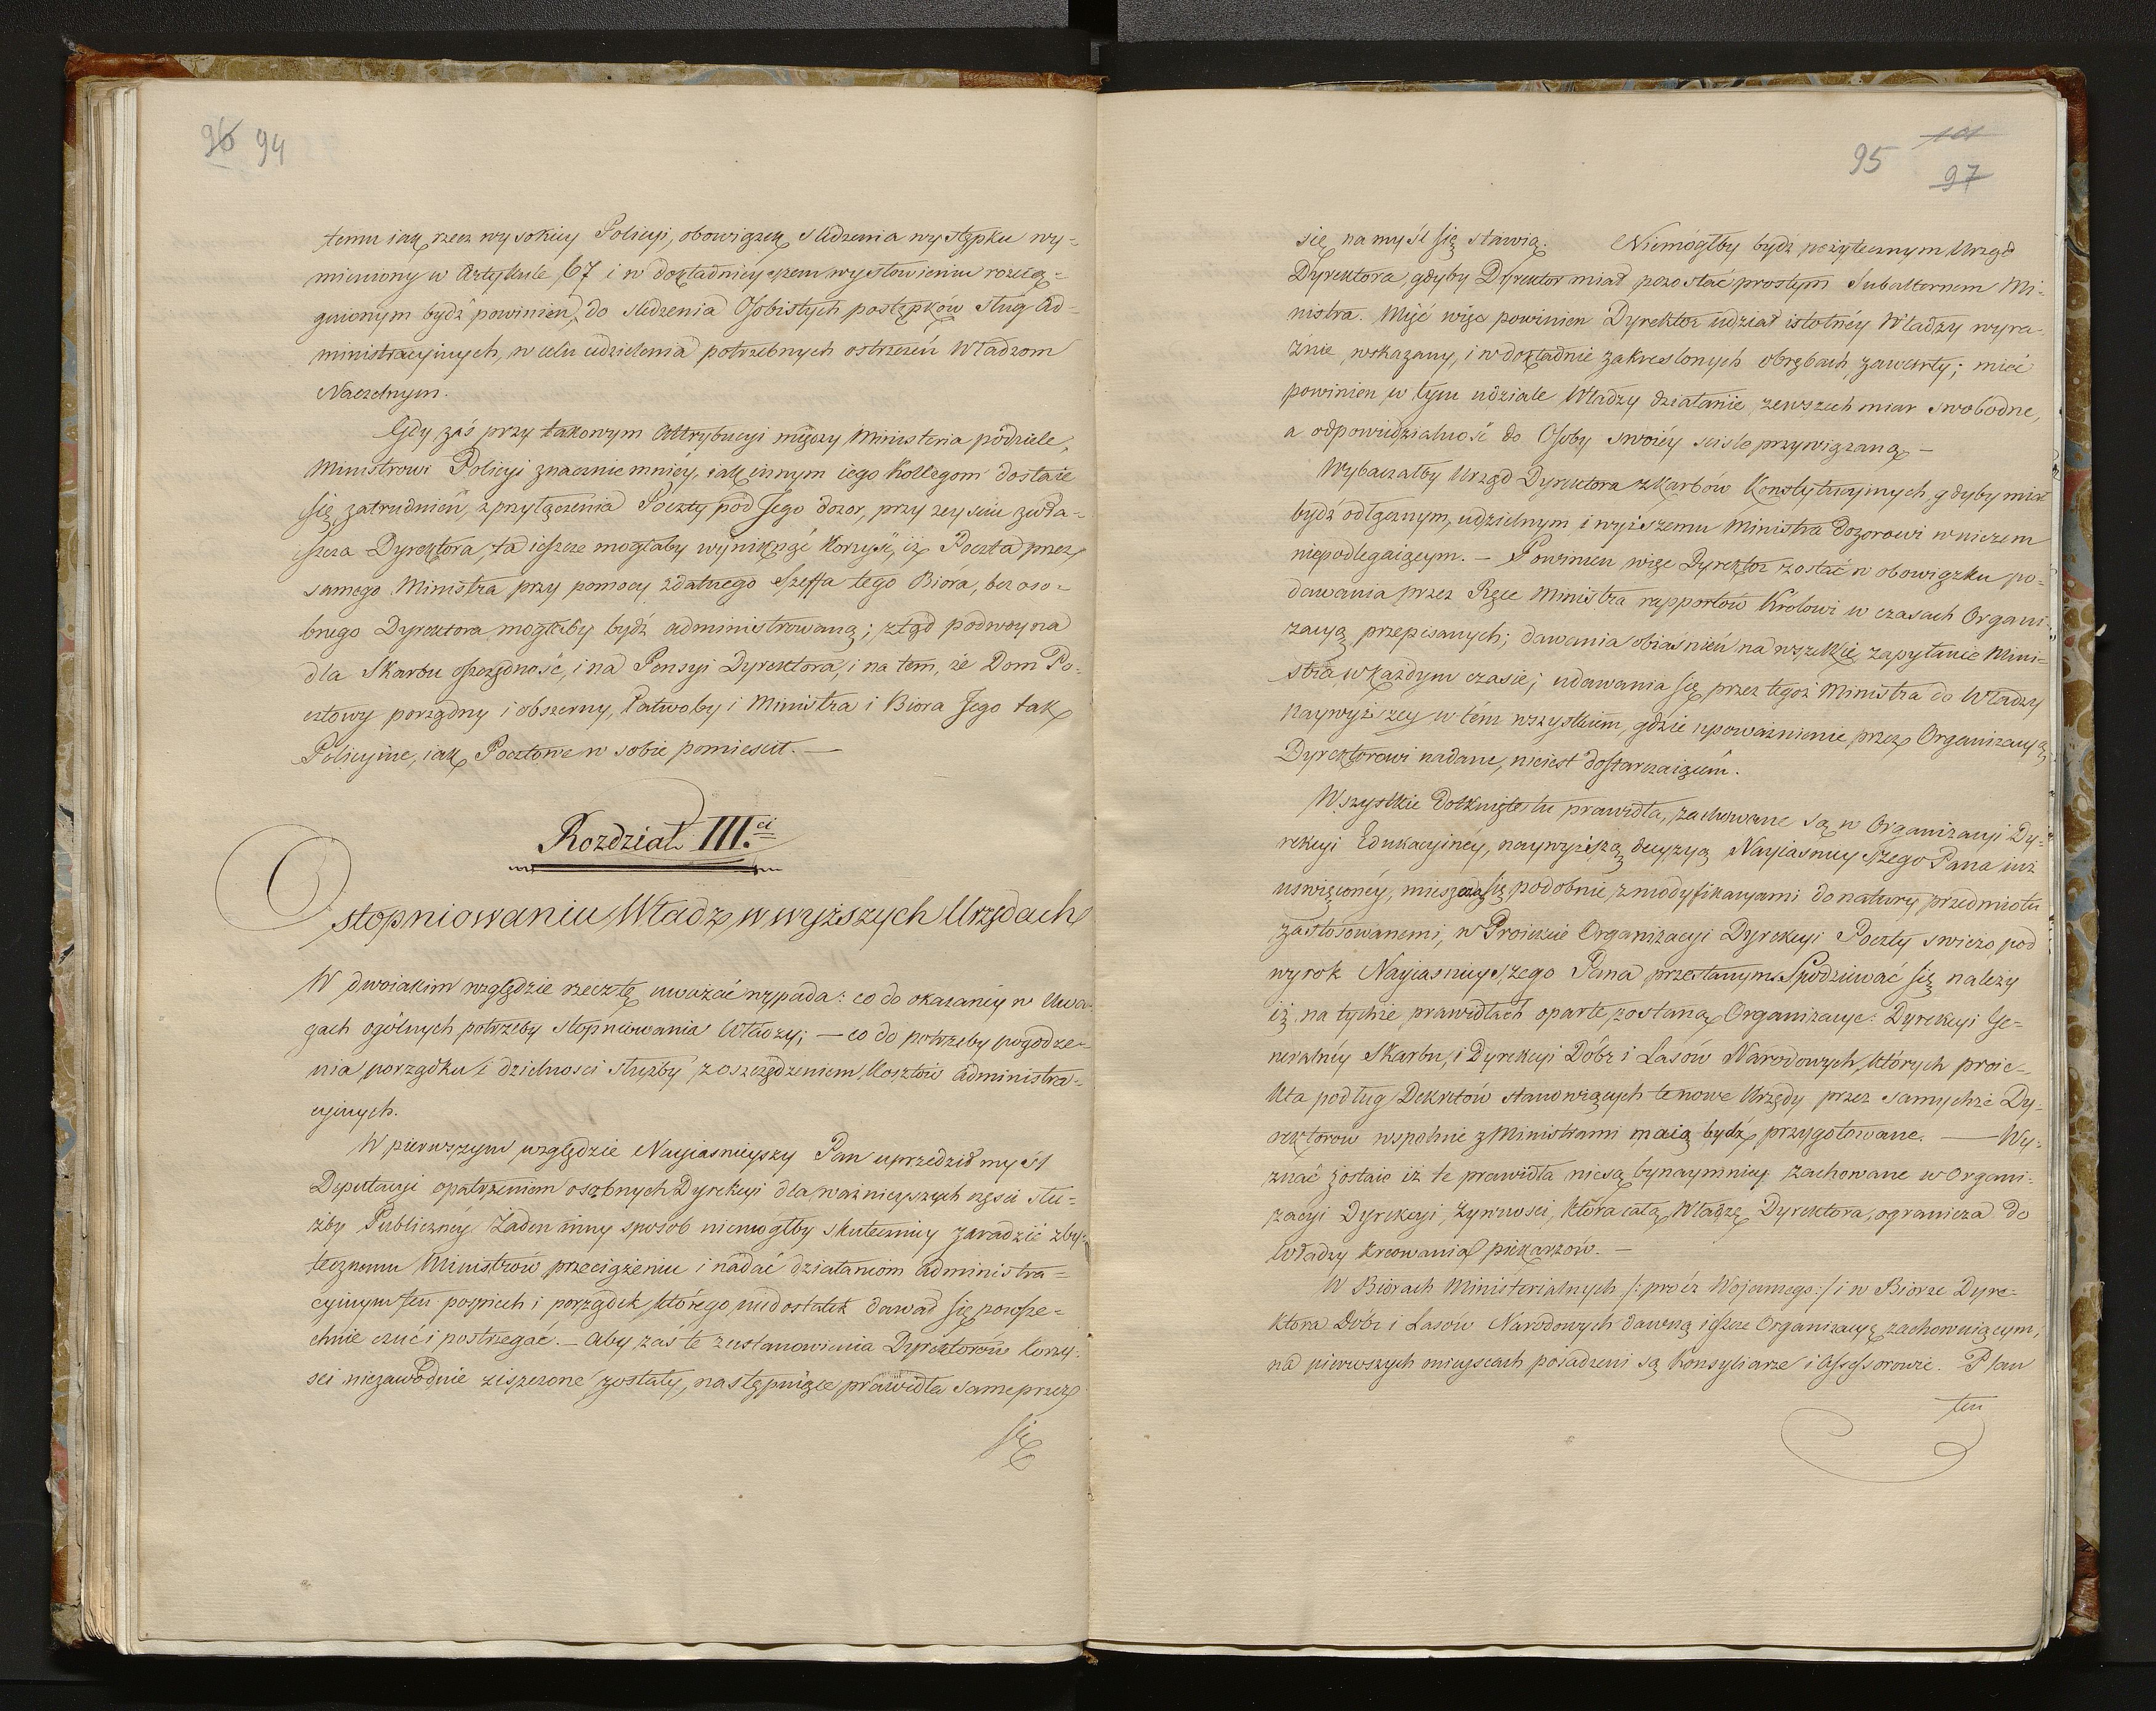 96 94
temu iak rzecz wysokiey Policyi, obowiązek sledzenia występku wy-
mieniony w Artykule 67 i w dokładnieyszem wysłowieniu rozcią-
gnionym bydź powinien, do sledzenia Osobistych postępków sług Ad-
ministracyinych, w celu udzielenia potrzebnych ostrzeżeń Władzom
Naczelnym.
Gdy zaś przy takowym Attrybucyi między Ministeria podziele,
Ministrowi Policyi znacznie mniéy, iak innym iego Kollegom dostaie
się zatrudnień, z przyłączenia Poczty pod Jego dozor, przy zeysciu
Dyrektora, ta ieszcze mogłaby wyniknąć korzyść, iż Poczta przez
samego Ministra przy pomocy zdatnego Szeffa tego Bióra, bez oso-
bnego Dyrektora mogłaby bydź administrowaną; ztąd podwoyna
dla Skarbu oszczędność, i na Pensyi Dyrektora, i na tem, że Dom Po-
cztowy porządny i obszerny, łatwoby i Ministra i Biora Jego tak
Policyine, iak Pocztowe w sobie pomiescił. —
Rozdział III.ci
O stopniowaniu Władz w wyższych Urzędach
W dwoiakim względzie rzecz tę uważać wypada: co do okazaney w Uwa-
gach ogólnych potrzeby stopniowania Władzy; — co do potrzeby pogodze-
nia porządku i dzielnosci służby z oszczędzeniem Kosztów administra-
cyinych.
W pierwszym względzie Nayiasnieyszy Pan uprzedził myśl
Deputacyi opatrzeniem osobnych Dyrekcyi dla ważnieyszych częsci słu-
żby Publicznéy. Żaden inny sposob niemógłby skuteczniey zaradzić zby-
tecznemu Ministrów przeciążeniu i nadać działaniom administra-
cyinym ten pospiech i porządek, którego niedostatek dawał się powsze-
chnie czuć i postrzegać. — Aby zaś te z ustanowienia Dyrektorów korzy-
sci niezawodnie ziszczone zostały, następuiące prawidła same przez
się
95 101
97
się na myśl się stawią. Niemógłby bydź pożytecznym Urząd
Dyrektora, gdyby Dyrektor miał pozostać prostym Subalternem Mi-
nistra. Mieć więc powinien Dyrektor udział istotnéy Władzy wyra-
znie wskazany, i w dokładnie zakreslonych obrębach zawarty; mieć
powinien w tym udziale Władzy działanie zewszech miar swobodne,
a odpowiedzialność do Osoby swoiéy scisle przywiązaną. —
Wybaczałby Urząd Dyrektora z karbów Konstytucyinych, gdyby miał
bydź odłącznym, udzielnym i wyższemu Ministra dozorowi w niczem
niepodlegaiącym. — Powinien więc Dyrektor zostać w obowiązku po-
dawania przez Ręce Ministra rapportów Krolowi w czasach Organi-
zacyą przepisanych; dawania obiaśnień na wszelkie zapytanie Mini-
stra w każdym czasie; udawania się przez tegoż Ministra do Władzy
naywyższey w tém wszystkiem, gdzie upoważnienie przez Organizacyą
Dyrektorowi nadane, nieiest dostarczaiącem.
Wszystkie dotknięte tu prawidła, zachowane są w Organizacyi Dy-
rekcyi Edukacyinéy, naywyższą decyzyą Nayiasnieyszego Pana iuż
uswięconéy, mieszczą się podobnie z modyfikacyami do natury przedmiotu
zastosowanemi, w Proiekcie Organizacyi Dyrekcyi Poczty swieżo pod
wyrok Nayiasnieyszego Pana przesłanym. Spodziewać się należy
iż na tychże prawidłach oparte zostaną Organizacye: Dyrekcyi Ge-
neralnéy Skarbu, i Dyrekcyi Dóbr i Lasów Narodowych, których proie-
kta podług Dekretów stanowiących te nowe Urzędy przez samychże Dy-
rektorow wspolnie z Ministrami maią bydź przygotowane. — Wy-
znać zostaie iż te prawidła niesą bynaymniey zachowane w Organi-
zacyi Dyrekcyi Żywnosci, która całą Władzę Dyrektora, ogranicza do
Władzy kreowania piekarzów. —
W Biórach Ministerialnych /: procz Wojennego :/ i w Biorze Dyre-
ktora Dóbr i Lasow Narodowych dawną ieszcze Organizacyę zachowuiącym,
na pierwszych mieyscach posadzeni są Konsyliarze i Assessorowie. Plan
ten